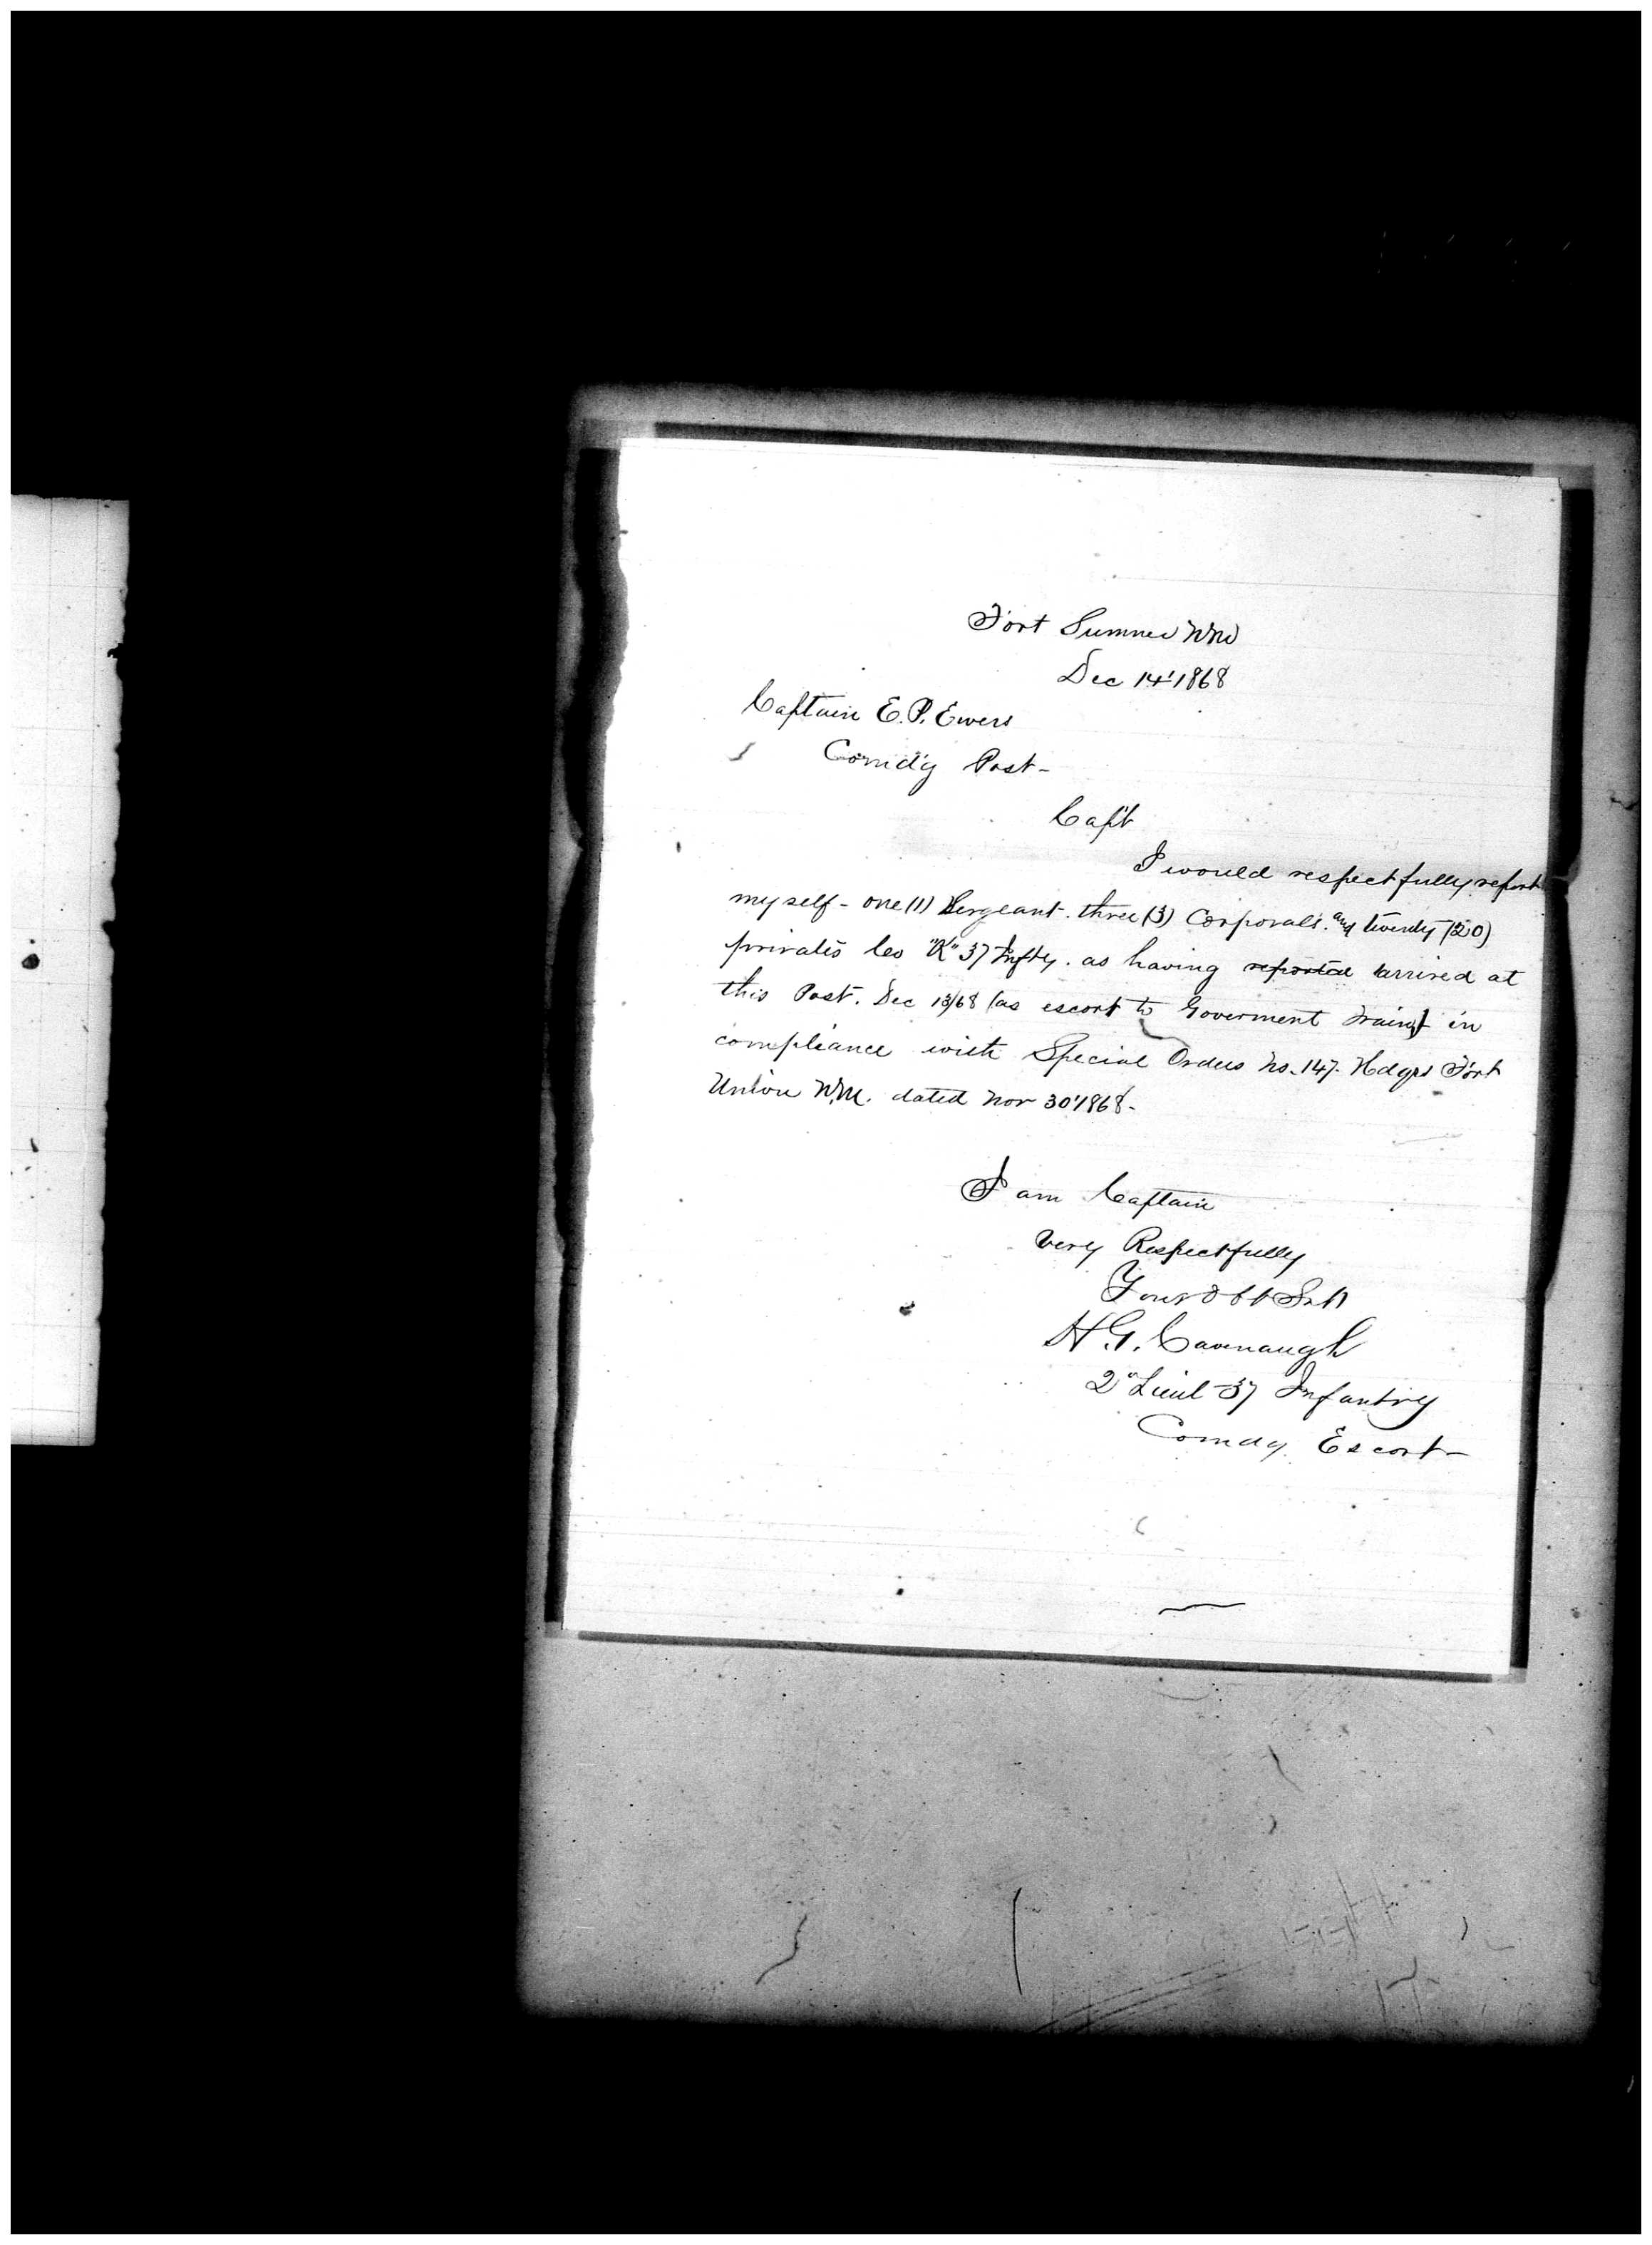 Fort Sumner N.M.
Dec 14 1868
Captain E.P. Ewers
Comd'g Post -
Capt
I would respectfully report
my self - one (1) Sergeant. three (3) Corporals. and twenty (20)
privates Co "K" 37 Infty. as having reported arrived at
this Post. Dec 13/68 (as escort to Goverment train) in
compliance with Special Orders No. 147. Hdqrs Fort
Union N.M. dated Nov 30 1868 -
I am Captain
Very Respectfully
Your Obt Svt
H.G. Cavenaugh
2" Lieut 37 Infantry
Comdg Escort -